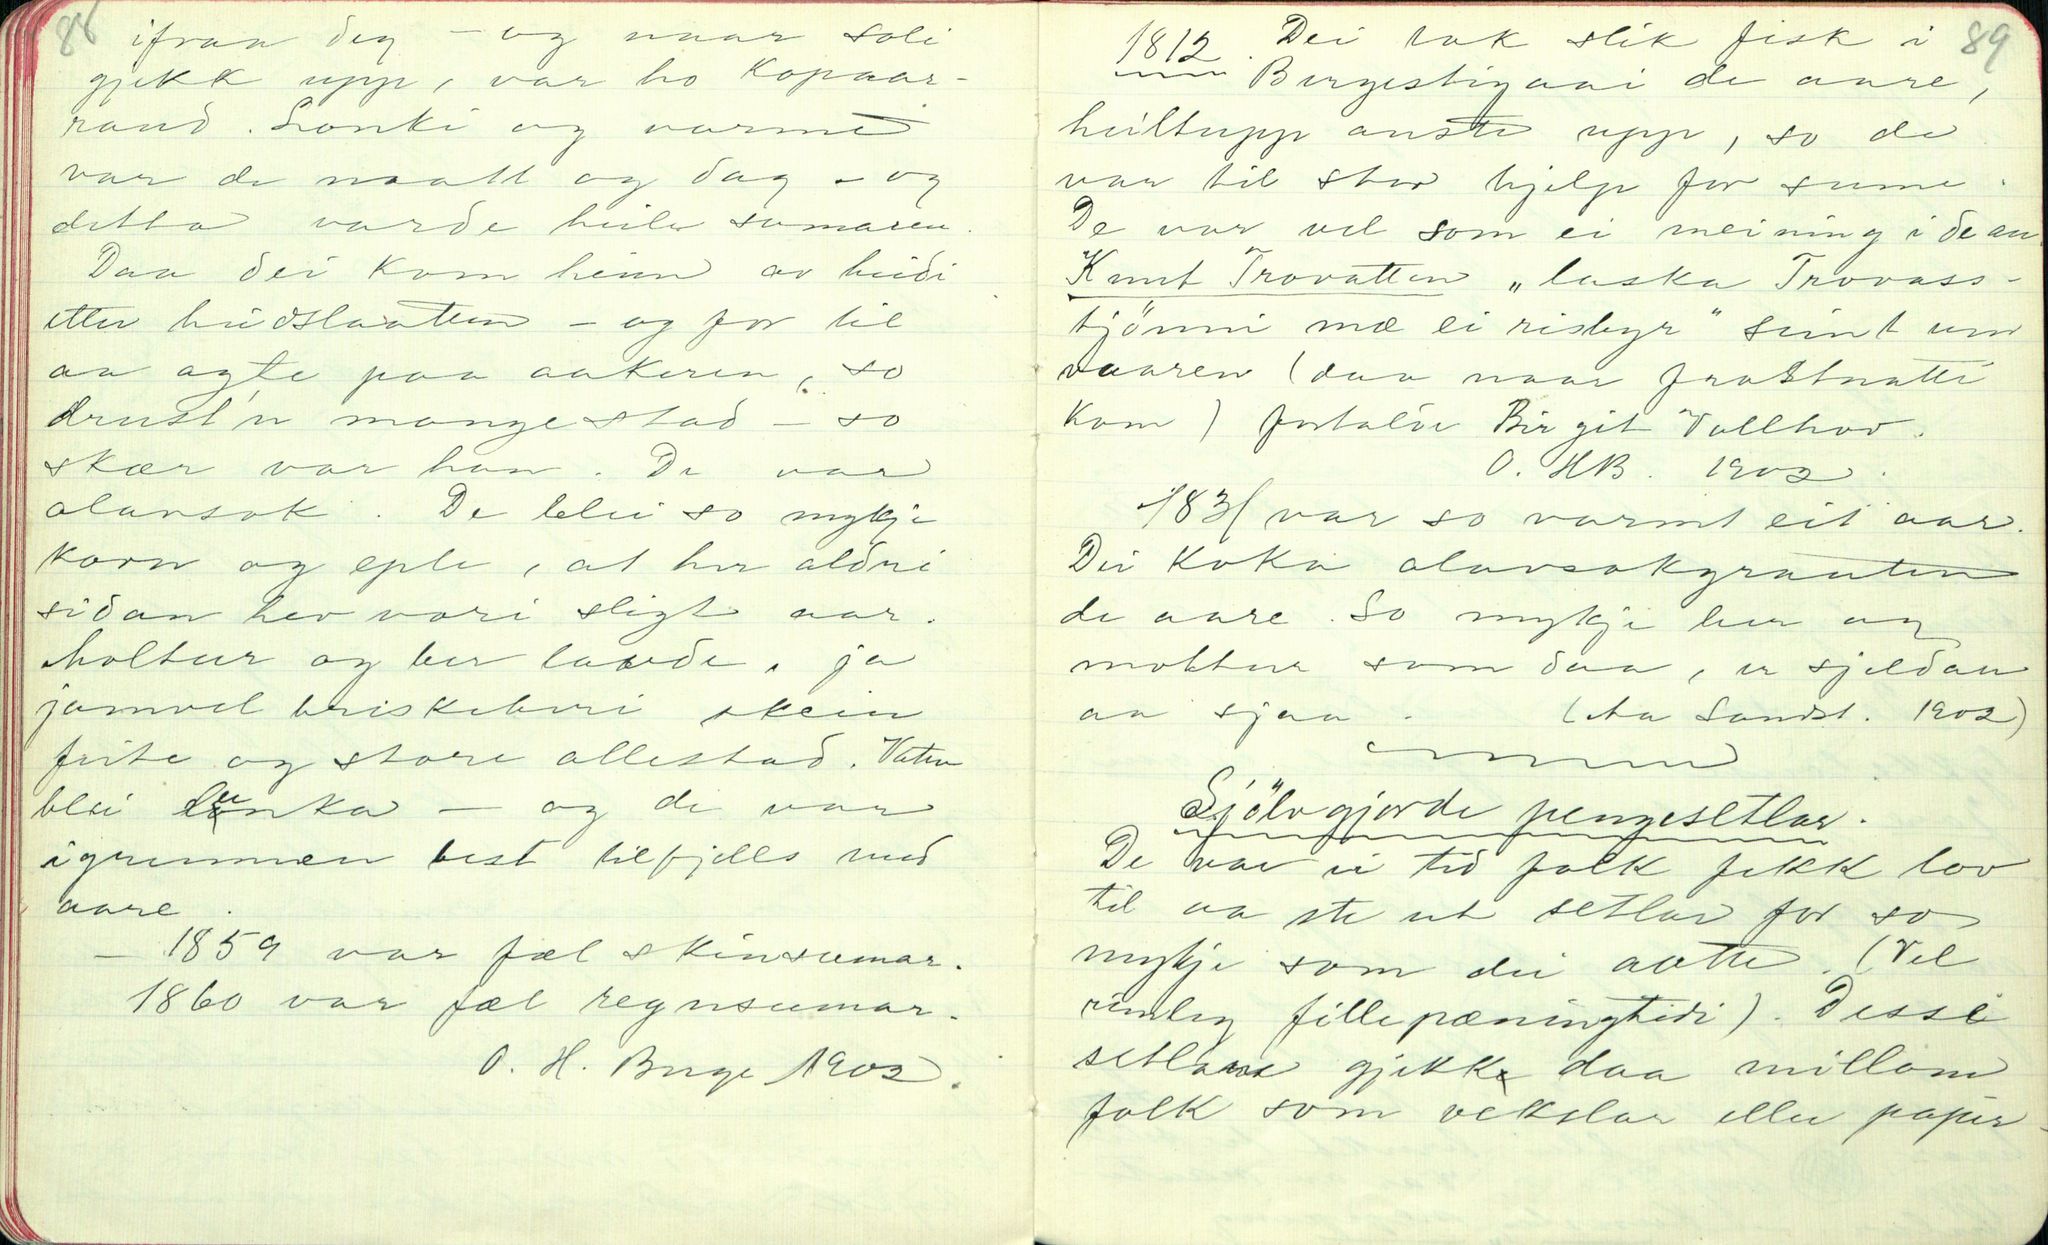 88
ifraa deg – og naar soli
gjekk upp, var ho kopaar-
raud. Lonki og varme
var de naatt og dag – og
detta varde heile sumaren.
Daa dei kom heim av heidi
etter heidslaatten – og for til
aa agte paa aakeren, so
drust'n mange stad – so
skær var han. De var
olavsok. De blei so mykje
korn og eple, at her aldri
sidan hev vori sligt aar.
Moltur og ber lavde, ja
jamvel briskeberi skein
feite og store allestad. Vatn
blei lunka – og de var
igrunnen best tilfjells med
aare.
– 1859 var fæl skinsumar.
1860 var fæl regnsumar.
O. H. Berge 1902.
89
1812. Dei tok slik fisk i
Bergestigaai de aare,
heiltupp onste upp, so de
var til stor hjelp for sume.
De var vel som ei meining i de an
Knut Trovatten „laska Trovass-
tjönni mæ ei risbyr" seint um
vaaren (daa naar frostnatti
kom) fortalde Birgit Vallhov.
O. HB. 1902.
1831 var so varmt eit aar.
Dei koka olavsokgrauten
de aare. So mykje ber og
moltur som daa, er sjeldan
aa sjaa. (Aa Sandst. 1902)
Sjölvgjorde pengesetlar.
De var ei tid folk fekk lov
til aa ste ut setlar for so
mykje som dei aatte. (Vel
rimleg fillepæningtidi). Desse
setlane gjekk daa millom
folk som vekslar eller papir-